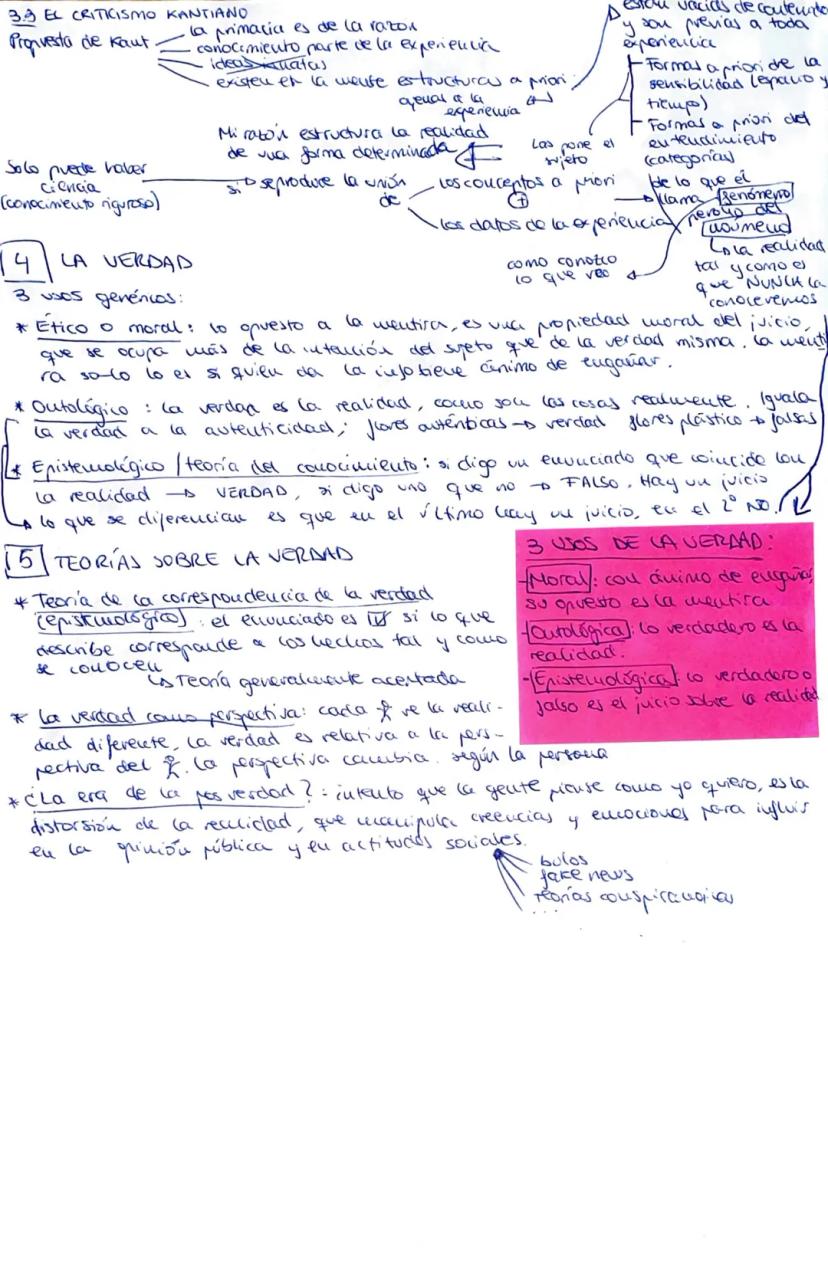 3.3 EL CRITICISMO KANTIANO
Propuesta de Kant
la primacia es de la razón
conocimiento parte de la experiencia
ideas innatas
existen en la mente estructuras a priori
ajenas a la
experiencia
están vacías de contenido
y son previas a toda
experiencia
- Formas a priori de la
sensibilidad (espacio y
tiempo)
- Formas a priori del
entendimiento
(categorías)
Las pone el
sujeto
Mi razón estructura la realidad
de una forma determinada
Solo puede haber
ciencia
(conocimiento riguroso)
si se produce la unión
de
los conceptos a priori
+
los datos de la experiencia
de lo que él
llama fenómeno
pero no del
noúmeno
como conozco
lo que veo
la realidad
tal y como es
que NUNCA la
conoceremos
4 LA VERDAD
3 usos genéricos:
* Ético o moral: lo opuesto a la mentira, es una propiedad moral del juicio,
que se ocupa más de la intención del sujeto que de la verdad misma. La menti
ra solo lo es si quien da la info tiene ánimo de engañar.
* Ontológico: la verdad es la realidad, como son las cosas realmente. Iguala
la verdad a la autenticidad; flores auténticas → verdad flores plástico → falsas
* Epistemológico / teoría del conocimiento: si digo un enunciado que coincide con
la realidad → VERDAD, si digo uno que no → FALSO. Hay un juicio
lo que se diferencian es que en el último hay un juicio, en el 2º NO.
5 TEORÍAS SOBRE LA VERDAD
* Teoría de la correspondencia de la verdad
(epistemológico): el enunciado es V si lo que
describe corresponde a los hechos tal y como
se conocen
↳ Teoría generalmente aceptada
* La verdad como perspectiva: cada ve la reali-
dad diferente, la verdad es relativa a la pers-
pectiva del . La perspectiva cambia según la persona
* ¿La era de la posverdad?: intento que la gente piense como yo quiero, es la
distorsión de la realidad, que manipula creencias y emociones para influir
en la opinión pública y en actitudes sociales.
bulos
fake news
teorías conspiranoicas
...
3 USOS DE LA VERDAD:
- Moral: con ánimo de engañar,
su opuesto es la mentira
- Ontológica: lo verdadero es la
realidad.
- Epistemológica: lo verdadero o
falso es el juicio sobre la realidad